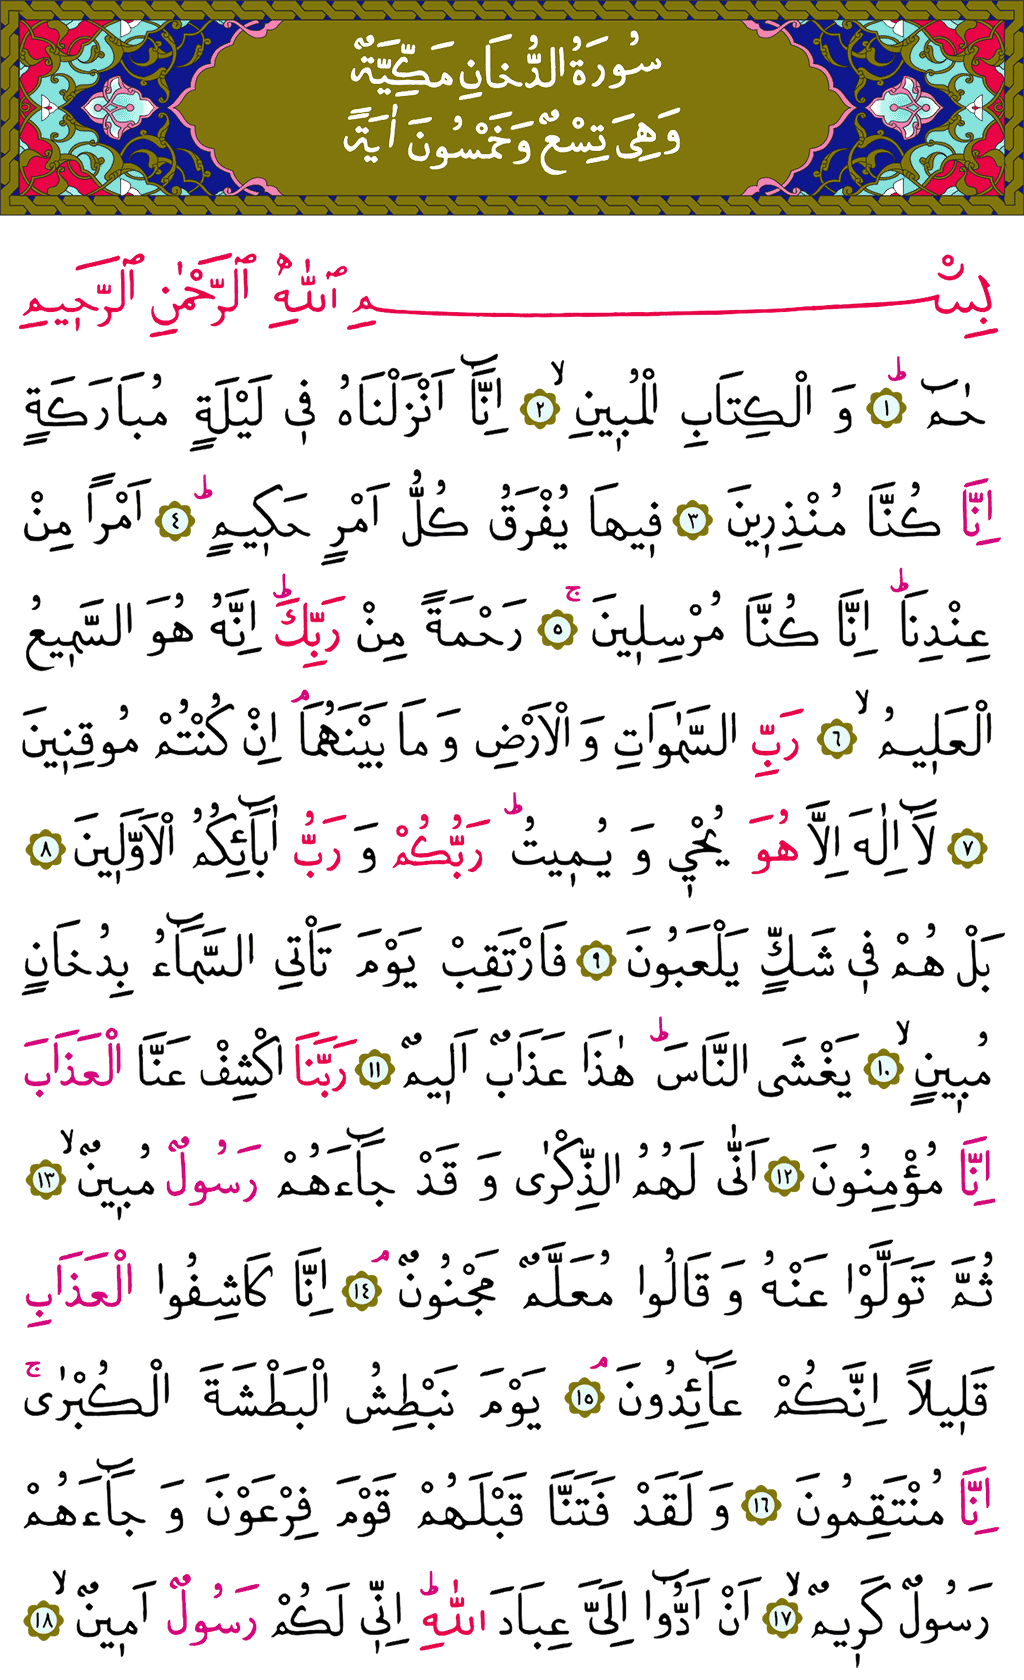 سُورَةُ الدُّخَانِ مَكِّيَّةٌ
وَهِىَ تِسْعٌ وَخَمْسُونَ اٰيَةً
بِسْمِ ٱللّٰهِ ٱلرَّحْمٰنِ ٱلرَّحٖيمِ
حٰمٓ ۜ ﴿١﴾ وَ الْكِتَابِ الْمُبٖينِ ۙ ﴿٢﴾ اِنَّٓا اَنْزَلْنَاهُ فٖى لَيْلَةٍ مُبَارَكَةٍ
اِنَّا كُنَّا مُنْذِرٖينَ ﴿٣﴾ فٖيهَا يُفْرَقُ كُلُّ اَمْرٍ حَكٖيمٍ ۜ ﴿٤﴾ اَمْرًا مِنْ
عِنْدِنَا ۜ اِنَّا كُنَّا مُرْسِلٖينَ ۚ ﴿٥﴾ رَحْمَةً مِنْ رَبِّكَ ۜ اِنَّهُ هُوَ السَّمٖيعُ
الْعَلٖيمُ ۙ ﴿٦﴾ رَبِّ السَّمٰوَاتِ وَ الْاَرْضِ وَ مَا بَيْنَهُمَا ۢ اِنْ كُنْتُمْ مُوقِنٖينَ
﴿٧﴾ لَٓا اِلٰهَ اِلَّا هُوَ يُحْيٖ وَ يُمٖيتُ ۜ رَبُّكُمْ وَ رَبُّ اٰبَٓائِكُمُ الْاَوَّلٖينَ ﴿٨﴾
بَلْ هُمْ فٖى شَكٍّ يَلْعَبُونَ ﴿٩﴾ فَارْتَقِبْ يَوْمَ تَاْتِى السَّمَٓاءُ بِدُخَانٍ
مُبٖينٍ ۙ ﴿١٠﴾ يَغْشَى النَّاسَ ۜ هٰذَا عَذَابٌ اَلٖيمٌ ﴿١١﴾ رَبَّنَا اكْشِفْ عَنَّا الْعَذَابَ
اِنَّا مُؤْمِنُونَ ﴿١٢﴾ اَنّٰى لَهُمُ الذِّكْرٰى وَ قَدْ جَٓاءَهُمْ رَسُولٌ مُبٖينٌ ۙ ﴿١٣﴾
ثُمَّ تَوَلَّوْا عَنْهُ وَ قَالُوا مُعَلَّمٌ مَجْنُونٌ ۢ ﴿١٤﴾ اِنَّا كَاشِفُوا الْعَذَابِ
قَلٖيلًا اِنَّكُمْ عَٓائِدُونَ ۢ ﴿١٥﴾ يَوْمَ نَبْطِشُ الْبَطْشَةَ الْكُبْرٰى ۚ
اِنَّا مُنْتَقِمُونَ ﴿١٦﴾ وَ لَقَدْ فَتَنَّا قَبْلَهُمْ قَوْمَ فِرْعَوْنَ وَ جَٓاءَهُمْ
رَسُولٌ كَرٖيمٌ ۙ ﴿١٧﴾ اَنْ اَدُّٓوا اِلَىَّ عِبَادَ اللّٰهِ ۜ اِنّٖى لَكُمْ رَسُولٌ اَمٖينٌ ۙ ﴿١٨﴾